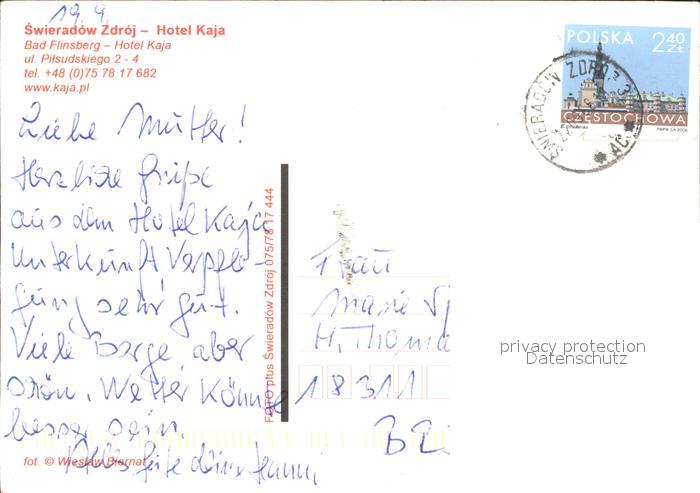 19.9.
Świeradów Zdrój – Hotel Kaja
Bad Flinsberg – Hotel Kaja
ul. Piłsudskiego 2 - 4
tel. +48 (0)75 78 17 682
www.kaja.pl
Liebe Mutter!
Herzliche Grüße
aus dem Hotel Kaja
Unterkunft Verpfle-
gung sehr gut.
Viele Berge aber
schön. Wetter könnte
besser sein.
Alles gute deine Hanni
fot. © Wiesław Biernat
FOTO plus Świeradów Zdrój 075/78 17 444
POLSKA 2 40 ZŁ
CZĘSTOCHOWA
PWPW SA 2006
ŚWIERADÓW ZDRÓJ 3
Frau
Marie
H. Thoma
18311
privacy protection
Datenschutz